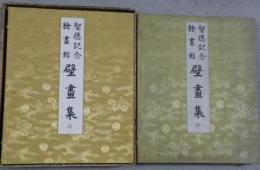 聖徳記念
繪畫館
壁畫集
聖徳記念
繪畫館
壁畫集